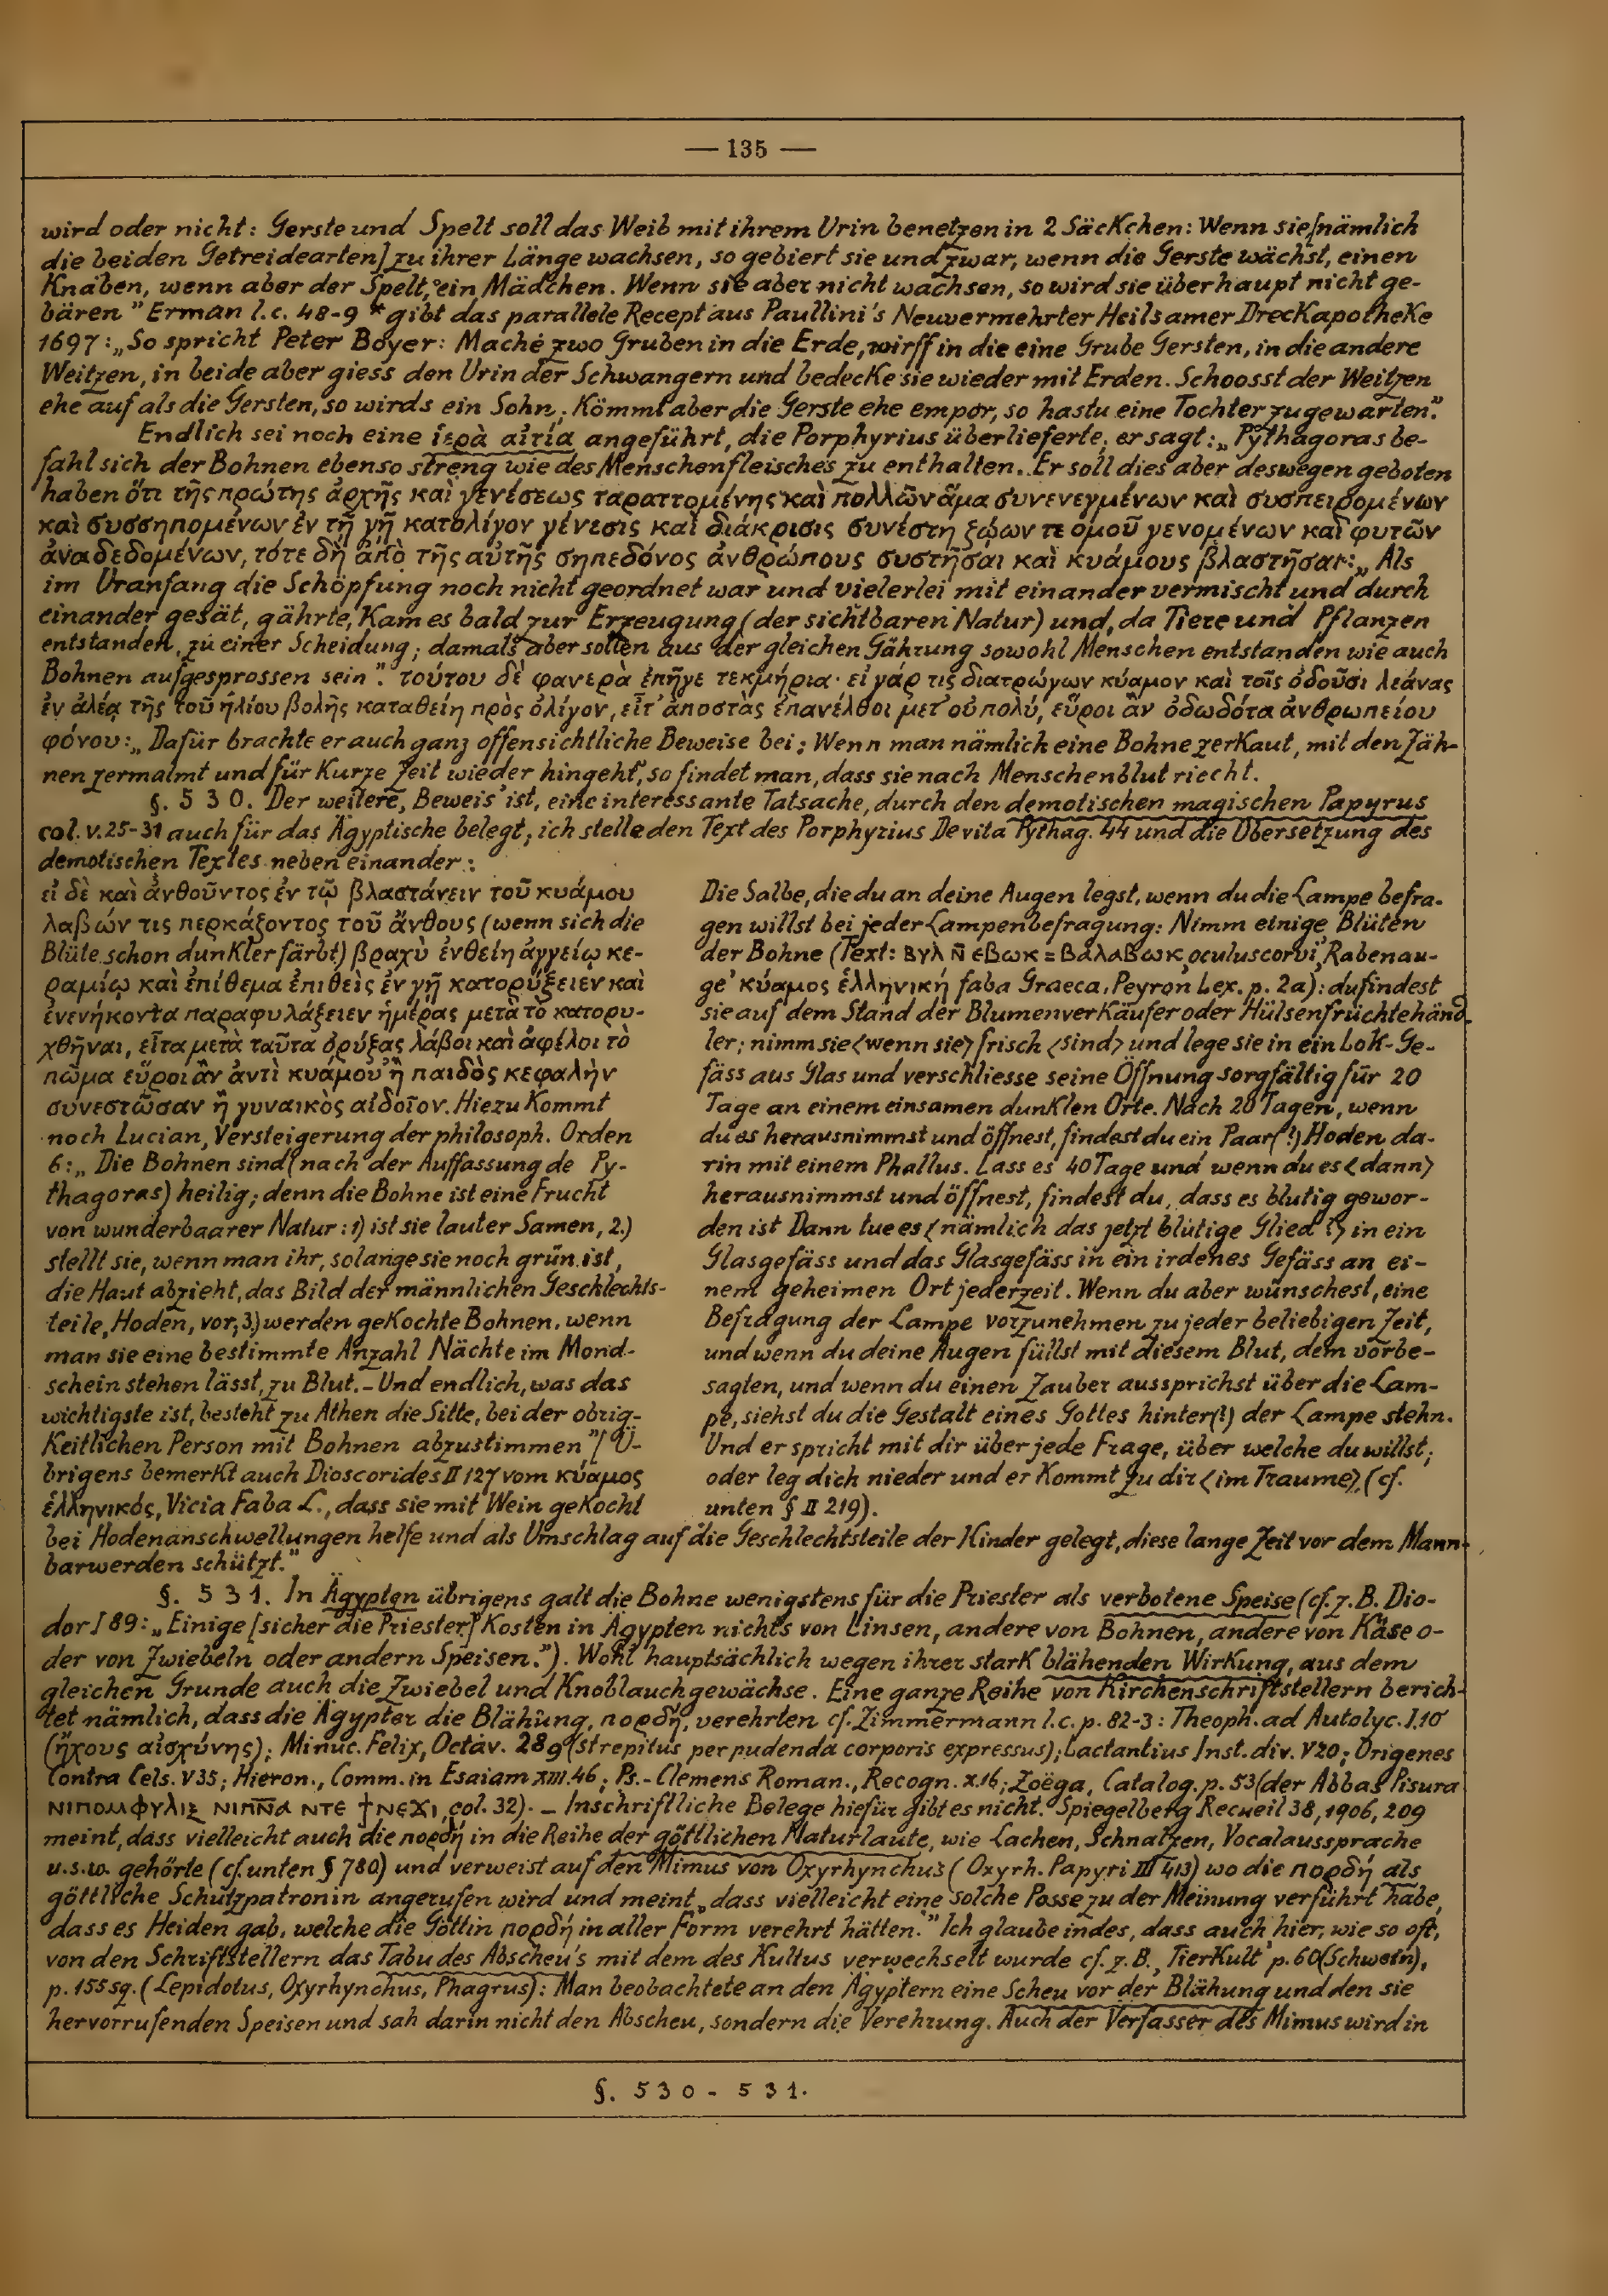 — 135 —
wird oder nicht: Gerste und Spelt soll das Weib mit ihrem Urin benetzen in 2 Säckchen: Wenn sie [nämlich
die beiden Getreidearten] zu ihrer Länge wachsen, so gebiert sie und zwar, wenn die Gerste wächst, einen
Knaben, wenn aber der Spelt, ein Mädchen. Wenn sie aber nicht wachsen, so wird sie überhaupt nicht ge-
bären" Erman l.c. 48-9 * gibt das parallele Recept aus Paullini's Neuvermehrter Heilsamer Dreckapotheke
1697: „So spricht Peter Boyer: Mache zwo Gruben in die Erde, wirff in die eine Grube Gersten, in die andere
Weitzen, in beide aber giess den Urin der Schwangern und bedecke sie wieder mit Erden. Schoosst der Weitzen
ehe auf als die Gersten, so wirds ein Sohn; Kömmt aber die Gerste ehe empor, so hastu eine Tochter zugewarten."
Endlich sei noch eine ἱερὰ αἰτία angeführt, die Porphyrius überlieferte; er sagt: „Pythagoras be-
fahl sich der Bohnen ebenso streng wie des Menschenfleisches zu enthalten. Er soll dies aber deswegen geboten
haben ὅτι τῆς πρώτης ἀρχῆς καὶ γενέσεως ταραττομένης καὶ πολλῶν ἅμα συνενεγμένων καὶ συσπειρομένων
καὶ συσσηπομένων ἐν τῇ γῇ κατολίγον γένεσις καὶ διάκρισις συνέστη ξῴων τε ὁμοῦ γενομένων καὶ φυτῶν
ἀναδεδομένων, τότε δὴ ἀπὸ τῆς αὐτῆς σηπεδόνος ἀνθρώπους συστῆσαι καὶ κυάμους βλαστῆσαι: „Als
im Uranfang die Schöpfung noch nicht geordnet war und vielerlei mit einander vermischt und durch
einander gesät, gährte, Kam es bald zur Erzeugung (der sichtbaren Natur) und, da Tiere und Pflanzen
entstanden, zu einer Scheidung; damals aber sollen aus der gleichen Gährung sowohl Menschen entstanden wie auch
Bohnen aufgesprossen sein". τούτου δὲ φανερὰ ἐπῆγε τεκμήρια· εἰ γάρ τις διατρώγων κύαμον καὶ τοῖς ὀδοῦσι λεάνας
ἐν ἀλέᾳ τῆς τοῦ ἡλίου βολῆς καταθείη πρὸς ὀλίγον, εἶτ' ἀποστὰς ἐπανέλθοι μετ' οὐ πολύ, εὕροι ἂν ὀδωδότα ἀνθρωπείου
φόνου: „Dafür brachte er auch ganz offensichtliche Beweise bei: Wenn man nämlich eine Bohne zerkaut, mit den Zäh-
nen zermalmt und für Kurze Zeit wieder hingeht, so findet man, dass sie nach Menschenblut riecht.
§. 530. Der weitere, Beweis' ist, eine interessante Tatsache, durch den demotischen magischen Papyrus
col. V. 25-31 auch für das Ägyptische belegt; ich stelle den Text des Porphyrius De vita Pythag. 44 und die Übersetzung des
demotischen Textes nebeneinander:
εἰ δὲ καὶ ἀνθοῦντος ἐν τῷ βλαστάνειν τοῦ κυάμου
λαβών τις περκάξοντος τοῦ ἄνθους (wenn sich die
Blüte schon dunkler färbt) βραχὺ ἐνθείη ἀγγείῳ κε-
ραμίῳ καὶ ἐπίθεμα ἐπιθεὶς ἐν γῇ κατορύξειεν καὶ
ἐνενήκοντα παραφυλάξειεν ἡμέρας μετὰ τὸ κατορυ-
χθῆναι, εἶτα μετὰ ταῦτα ὀρύξας λάβοι καὶ ἀφέλοι τὸ
πῶμα εὕροι ἂν ἀντὶ κυάμου ἢ παιδὸς κεφαλὴν
συνεστῶσαν ἢ γυναικὸς αἰδοῖον. Hiezu Kommt
noch Lucian, Versteigerung der philosoph. Orden
6: „Die Bohnen sind (nach der Auffassung de Py-
thagoras) heilig; denn die Bohne ist eine Frucht
von wunderbaarer Natur: 1) ist sie lauter Samen, 2.)
stellt sie, wenn man ihr, solange sie noch grün ist,
die Haut abzieht, das Bild der männlichen Geschlechts-
teile, Hoden, vor; 3.) werden gekochte Bohnen, wenn
man sie eine bestimmte Anzahl Nächte im Mond-
schein stehen lässt, zu Blut. – Und endlich, was das
wichtigste ist, besteht zu Athen die Sitte, bei der obrig-
Keitlichen Person mit Bohnen abzustimmen" [Ü-
brigens bemerkt auch Dioscorides II 127 vom κύαμος
ἑλληνικός, Vicia Faba L., dass sie mit Wein gekocht
Die Salbe, die du an deine Augen legst, wenn du die Lampe befra-
gen willst bei jeder Lampenbefragung: Nimm einige Blüten
der Bohne (Text: ⲃⲩⲗ ⲛ̄ ⲉⲃⲱⲕ = ⲃⲁⲗⲁⲃⲱⲕ, oculus corvi, Rabenau-
ge' κύαμος ἑλληνική faba Graeca. Peyron Lex. p. 2a): du findest
sie auf dem Stand der Blumenverkäufer oder Hülsenfrüchtehänd-
ler; nimm sie <wenn sie> frisch <sind> und lege sie in ein Lok-Ge-
fäss aus Glas und verschliesse seine Öffnung sorgfältig für 20
Tage an einem einsamen dunklen Orte. Nach 20 Tagen, wenn
du es herausnimmst und öffnest, findest du ein Paar (?) Hoden da-
rin mit einem Phallus. Lass es 40 Tage und wenn du es <dann>
herausnimmst und öffnest, findest du, dass es blutig gewor-
den ist Dann tue es <nämlich das jetzt blutige Glied ?> in ein
Glasgefäss und das Glasgefäss in ein irdenes Gefäss an ei-
nem geheimen Ort jederzeit. Wenn du aber wünschest, eine
Befragung der Lampe vorzunehmen zu jeder beliebigen Zeit,
und wenn du deine Augen füllst mit diesem Blut, dem vorbe-
sagten, und wenn du einen Zauber aussprichst über die Lam-
pe, siehst du die Gestalt eines Gottes hinter (?) der Lampe stehn.
Und er spricht mit dir über jede Frage, über welche du willst;
oder leg dich nieder und er Kommt zu dir <im Traume>. (cf.
unten § II 219).
bei Hodenanschwellungen helfe und als Umschlag auf die Geschlechtsteile der Kinder gelegt, diese lange Zeit vor dem Mann-
barwerden schützt."
§. 531. In Ägypten übrigens galt die Bohne wenigstens für die Priester als verbotene Speise (cf. z. B. Dio-
dor I 89: „Einige [sicher die Priester] Kosten in Ägypten nichts von Linsen, andere von Bohnen, andere von Käse o-
der von Zwiebeln oder andern Speisen."). Wohl hauptsächlich wegen ihrer stark blähenden Wirkung, aus dem
gleichen Grunde auch die Zwiebel und Knoblauchgewächse. Eine ganze Reihe von Kirchenschriftstellern berich-
tet nämlich, dass die Ägypter die Blähung, πορδή, verehrten cf. Zimmermann l.c. p. 82-3: Theoph. ad Autolyc. I.10
(ἤχους αἰσχύνης); Minuc. Felix, Octav. 289 (strepitus per pudenda corporis expressus); Lactantius Inst. div. V 20; Origenes
Contra Cels. V 35; Hieron., Comm. in Esaiam XIII.46; Ps.-Clemens Roman., Recogn. X.16; Zoëga, Catalog. p. 53 (der Abbas Pisura
ⲛⲓⲡⲟⲙⲫⲩⲗⲓⲝ ⲛⲓⲡⲛ̄ⲁ̄ ⲛⲧⲉ ϯⲛⲉϫⲓ, col. 32). – Inschriftliche Belege hiefür gibt es nicht. Spiegelberg Recueil 38, 1906, 209
meint, dass vielleicht auch die πορδή in die Reihe der göttlichen Naturlaute, wie Lachen, Schnalzen, Vocalaussprache
u.s.w. gehörte (cf. unten § 780) und verweist auf den Mimus von Oxyrhynchus (Oxyrh. Papyri III 413) wo die πορδή als
göttliche Schutzpatronin angerufen wird und meint „dass vielleicht eine solche Posse zu der Meinung verführt habe,
dass es Heiden gab, welche die Göttin πορδή in aller Form verehrt hätten." Ich glaube indes, dass auch hier, wie so oft,
von den Schriftstellern das Tabu des Abscheu's mit dem des Kultus verwechselt wurde cf. z. B. „Tierkult" p. 60 (Schwein),
p. 155 sq. (Lepidotus, Oxyrhynchus, Phagrus): Man beobachtete an den Ägyptern eine Scheu vor der Blähung und den sie
hervorrufenden Speisen und sah darin nicht den Abscheu, sondern die Verehrung. Auch der Verfasser des Mimus wird in
§. 530 - 531.